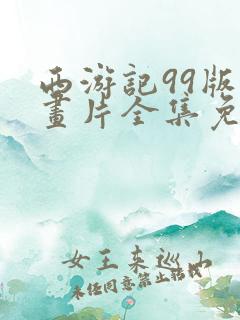 西游記99版
畫片全集免
女王来巡山
未经同意禁止搭讪